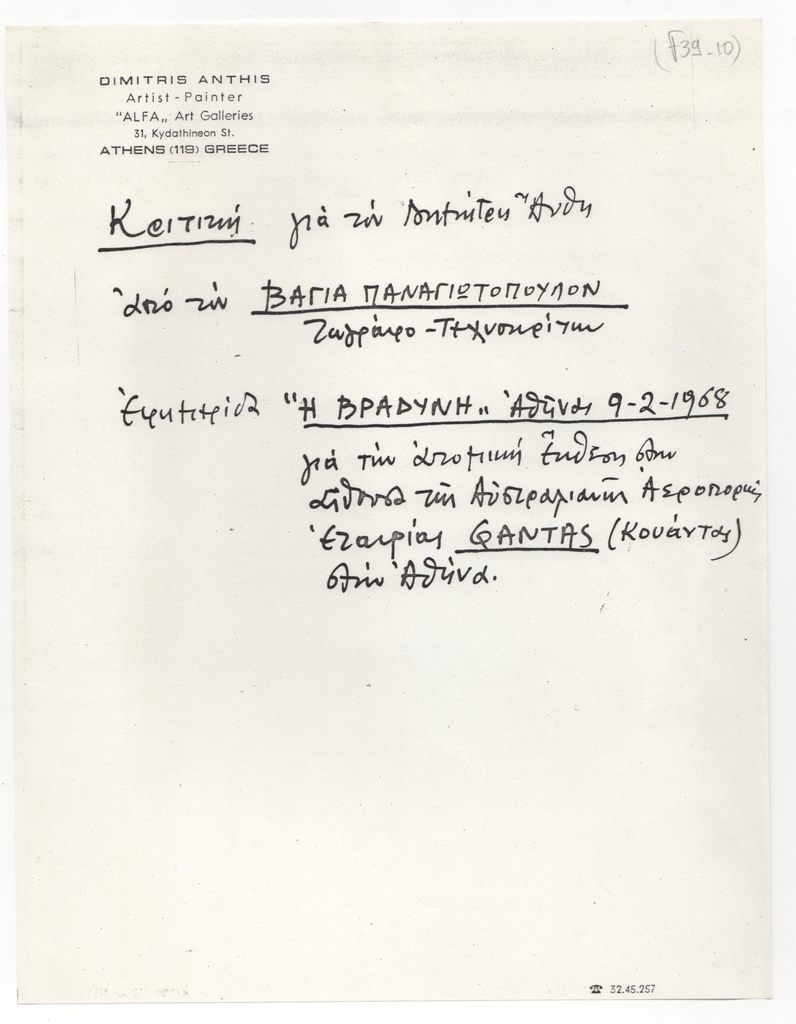 (F39-10)
DIMITRIS ANTHIS
Artist - Painter
"ALFA„ Art Galleries
31, Kydathineon St.
ATHENS (119) GREECE
Κριτική γιά τόν Δημήτρη Ἄνθη
ἀπό τόν ΒΑΓΙΑ ΠΑΝΑΓΙΩΤΟΠΟΥΛΟΝ
Ζωγράφο - Τεχνοκρίτην
Ἐφημερίδα "Η ΒΡΑΔΥΝΗ„ Ἀθῆναι 9-2-1968
γιά τήν ἀτομική Ἔκθεση στήν
αἴθουσα τῆς Αὐστραλιανῆς Ἀεροπορικῆς
Ἑταιρίας QANTAS (Κουάντας)
στήν Ἀθήνα.
☎ 32.45.257